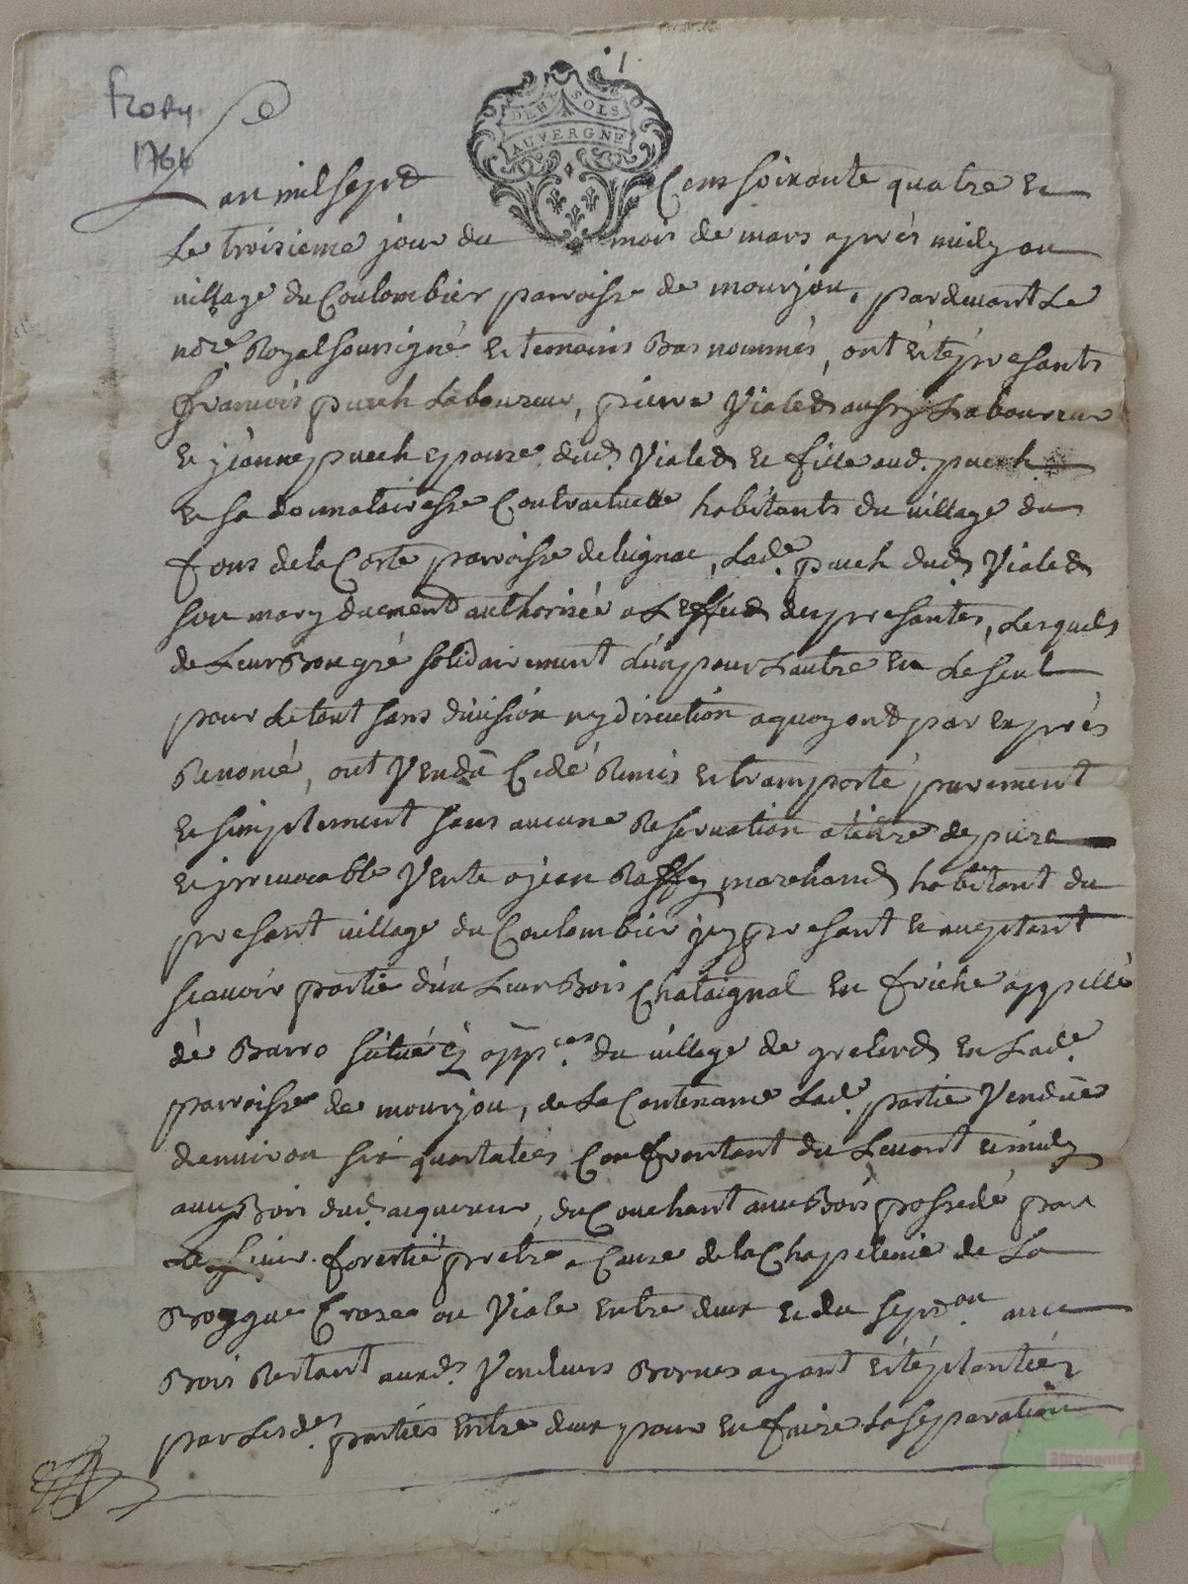 1.
1764
DEU SOLS
AUVERGNE
Lan mil sept Cens soixante quatre et
Le troisieme jour du mois de mars apres midy au
village du Coulombier parroisse de mourjou, pardevant Le
nore Royal soursigné et temoins Bas nommés, ont été presants
françois puech Laboureur, pierre Vialed aussy Laboureur
et jeanne puech epouze dud. Vialed et fille aud. puech
et sa donnatairesse Contractuelle habitants du village du
fons de la Coste parroisse de luignac, Lade. puech dud Vialed
son mary duement authorizée a Leffed des presantes, Lesquels
de Leur Bon gré solidairement Lun pour Lautre et Le seul
pour Le tout sans division ny discution a quoy ont par exprés
Renoncé, ont Vendu Cedé Remis et transporté purement
et simplement sans aucune Reservation a tittre de pure
et jrrevocable Vente a jean Raffy marchand habitant du
presant village du Coulombier jcy presant et aceptant
scavoir partie d'un Leur Bois Chataignal en friche appellé
dé Barro situé ez appces. du village de grelerd en Lade.
parroisse de mourjou, de La Contenance Lade. partie Vendue
denviron six quartalées Confrontant du Levant et midy
avec Bois dud. acquereur, du Couchant avec Bois possedé par
Le sieur forestié pretre a Cause de la Chapelenie de La
Broque Croze ou Viale entre deux et du sepon. avec
Bois Restant auxds. Vendeurs Bornes ayant été plantiés
par Lesdes. parties entre deux pour en faire La separation